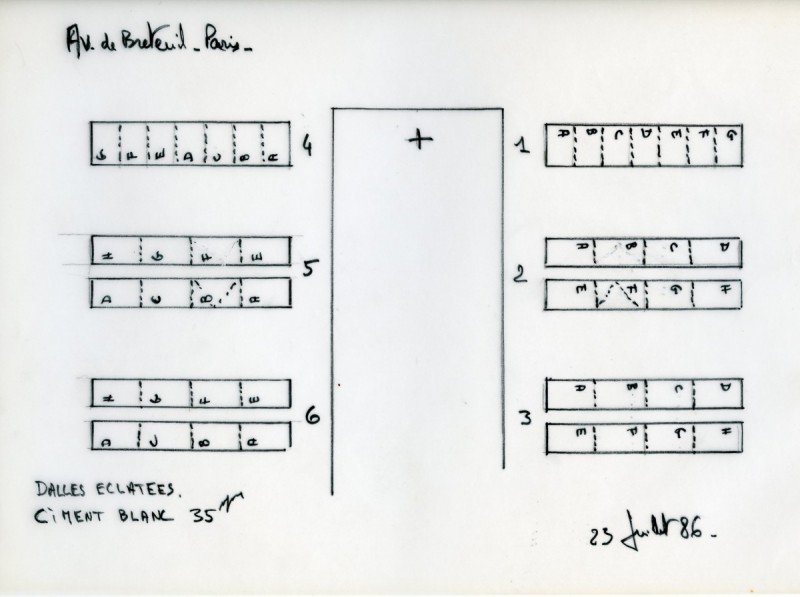 Av. de Breteuil - Paris -
4
G F E D C B A
1
A B C D E F G
5
H G F E
D C B A
2
A B C D
E F G H
6
H G F E
D C B A
3
A B C D
E F G H
DALLES ECLATEES.
CiMENT BLANC 35
23 Juillet 86.